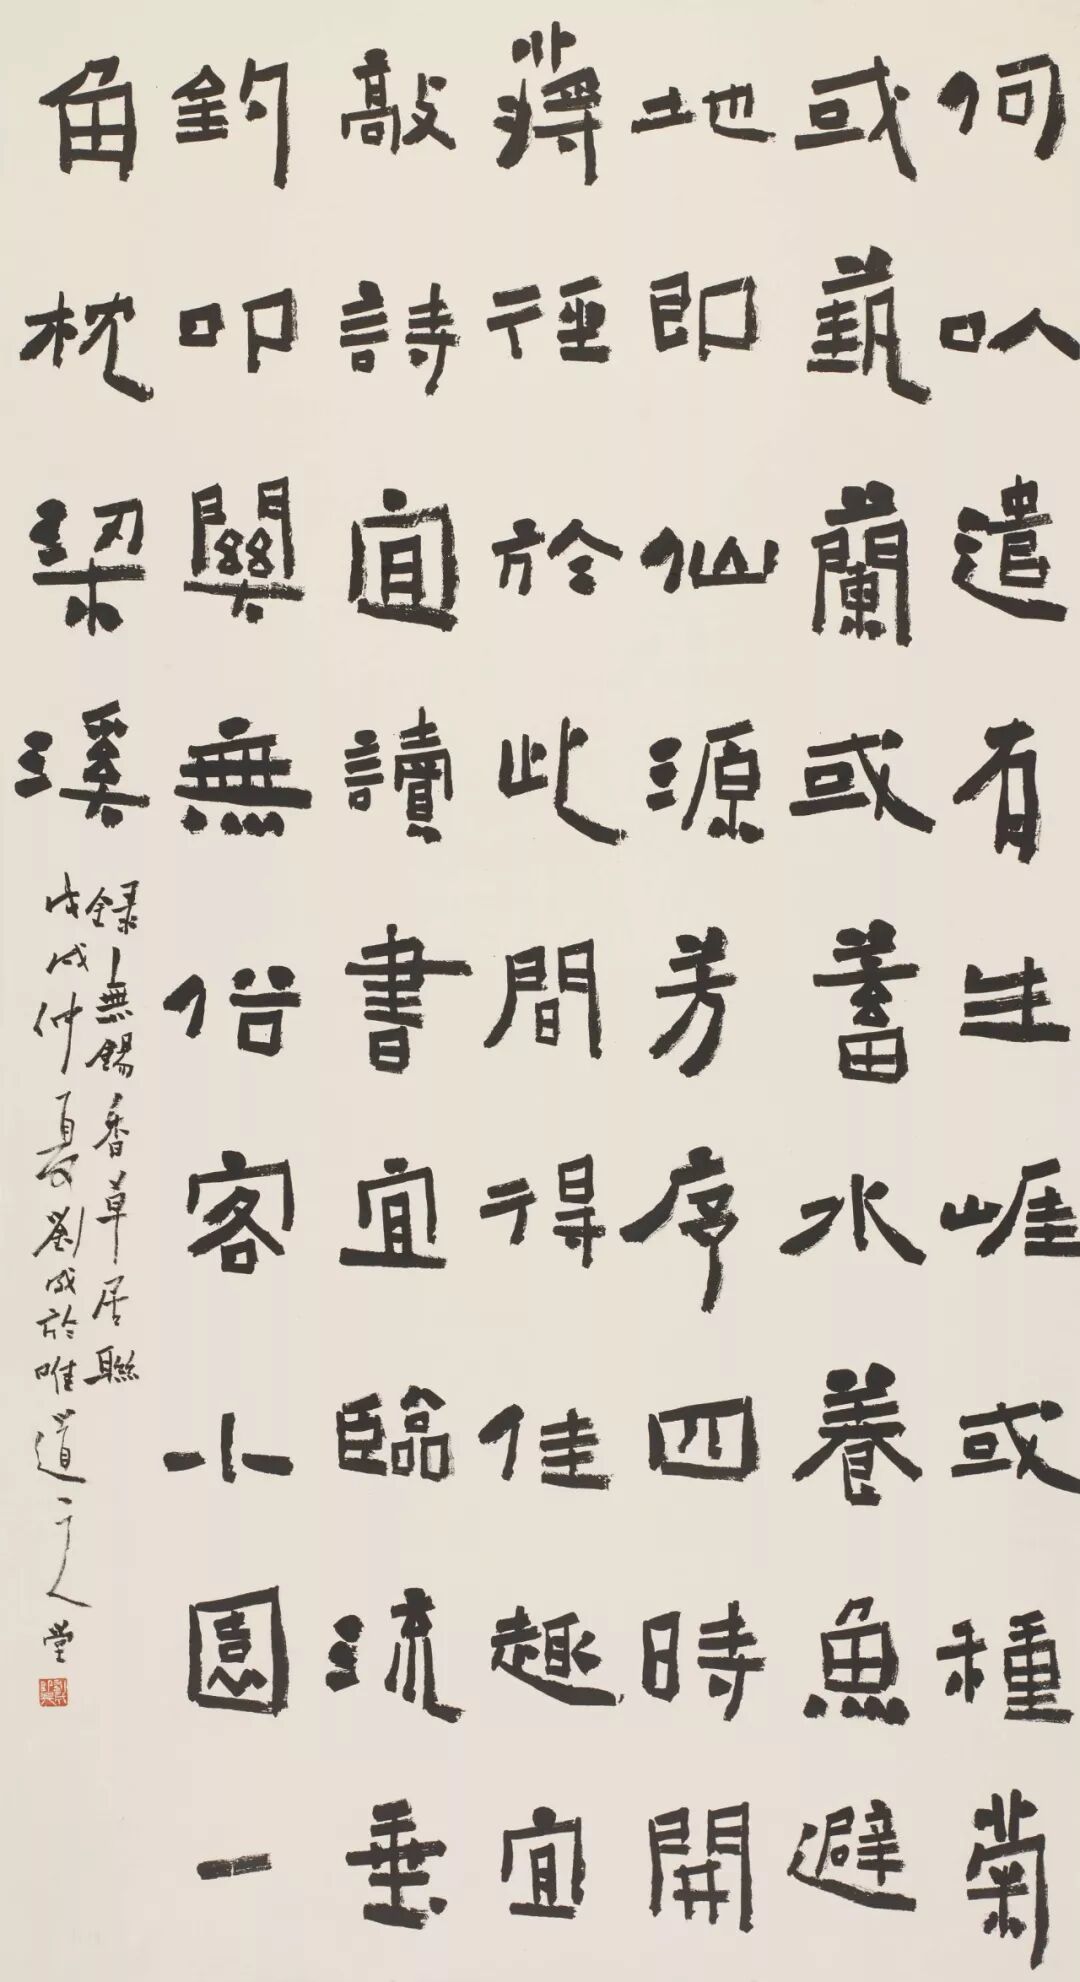 何以遣有生崖或種菊
或蓺蘭或蓄水養魚避
地即仙源芳序四時開
蔣徑於此間得佳趣宜
敲詩宜讀書宜臨流垂
釣叩關無俗客小園一
角枕梁溪
錄無錫香草居聯
戊戌仲夏劉成於唯道人堂